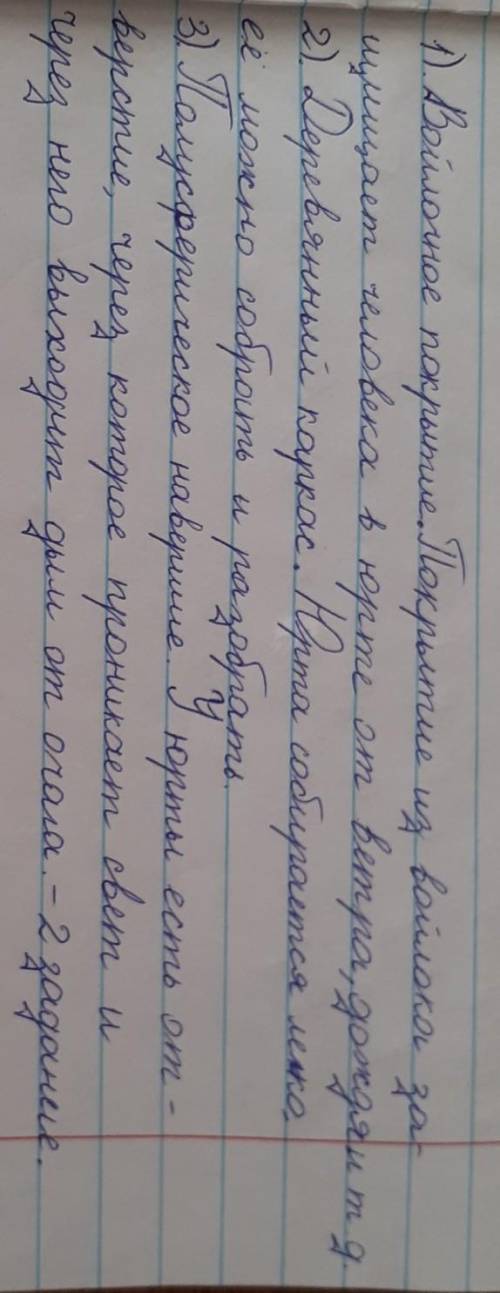 1). Войлочное покрытие. Покрытие из войлока за-
щищает человека в юрте от ветра, дождя и т д.
2). Деревянный каркас. Юрта собирается легко,
её можно собрать и разобрать.
3). Полусферическое навершие. У юрты есть от-
верстие, через которое проникает свет и
через него выходит дым от очага. - 2 задание.